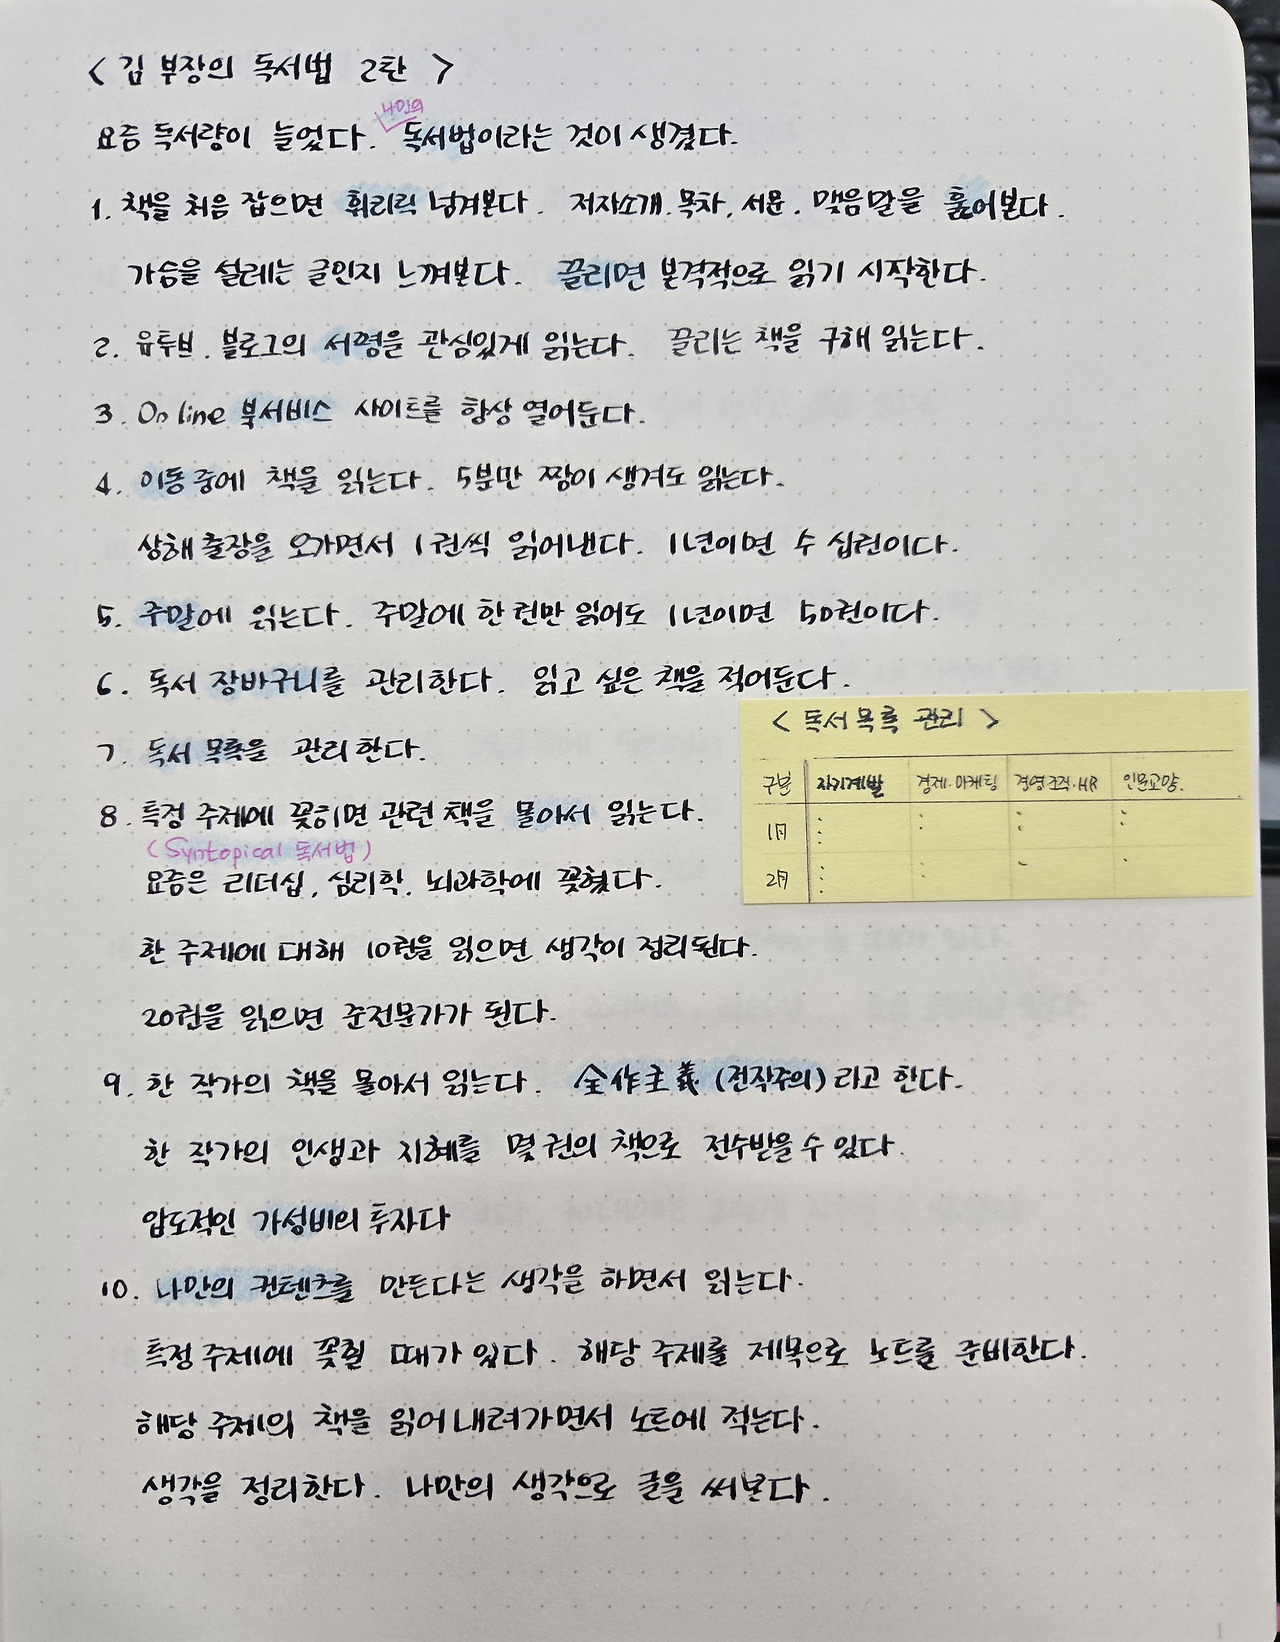 < 김 부장의 독서법 2탄 >
요즘 독서량이 늘었다. 나만의 독서법이라는 것이 생겼다.
1. 책을 처음 잡으면 휘리릭 넘겨본다. 저자소개, 목차, 서문, 맺음말을 훑어본다.
가슴을 설레는 글인지 느껴본다. 끌리면 본격적으로 읽기 시작한다.
2. 유투브, 블로그의 서평을 관심있게 읽는다. 끌리는 책을 구해 읽는다.
3. On line 북서비스 사이트를 항상 열어둔다.
4. 이동 중에 책을 읽는다. 5분만 짬이 생겨도 읽는다.
상해 출장을 오가면서 1권씩 읽어낸다. 1년이면 수 십권이다.
5. 주말에 읽는다. 주말에 한 권만 읽어도 1년이면 50권이다.
6. 독서 장바구니를 관리한다. 읽고 싶은 책을 적어둔다.
7. 독서 목록을 관리한다.
< 독서 목록 관리 >
구분 자기계발 경제·마케팅 경영조직·HR 인문교양
1月
2月
8. 특정 주제에 꽂히면 관련 책을 몰아서 읽는다.
(Syntopical 독서법)
요즘은 리더십, 심리학, 뇌과학에 꽂혔다.
한 주제에 대해 10권을 읽으면 생각이 정리된다.
20권을 읽으면 준전문가가 된다.
9. 한 작가의 책을 몰아서 읽는다. 全作主義 (전작주의) 라고 한다.
한 작가의 인생과 지혜를 몇 권의 책으로 전수받을 수 있다.
압도적인 가성비의 투자다
10. 나만의 컨텐츠를 만든다는 생각을 하면서 읽는다.
특정 주제에 꽂힐 때가 있다. 해당 주제를 제목으로 노트를 준비한다.
해당 주제의 책을 읽어 내려가면서 노트에 적는다.
생각을 정리한다. 나만의 생각으로 글을 써본다.
1